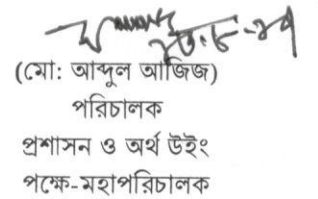 (মো: আব্দুল আজিজ)
পরিচালক
প্রশাসন ও অর্থ উইং
পক্ষে-মহাপরিচালক